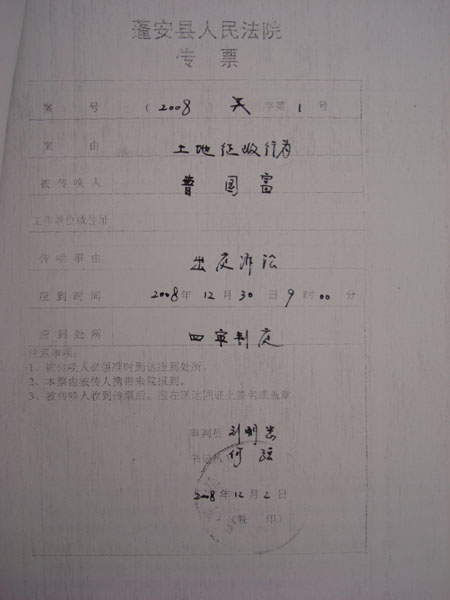 蓬安县人民法院
传票
案号 (2008) 字第 1 号
案由 土地征收行为
被传唤人 曾国富
工作单位或住址
传唤事由 出庭诉讼
应到时间 2008年 12月 30日 9时 00分
应到处所 四审判庭
注意事项：
1、被传唤人必须准时到达应到处所。
2、本票由被传人携带来院报到。
3、被传唤人收到传票后，应在送达回证上签名或盖章。
审判员 刘明
书记员 何
2008年12月2日
(院印)